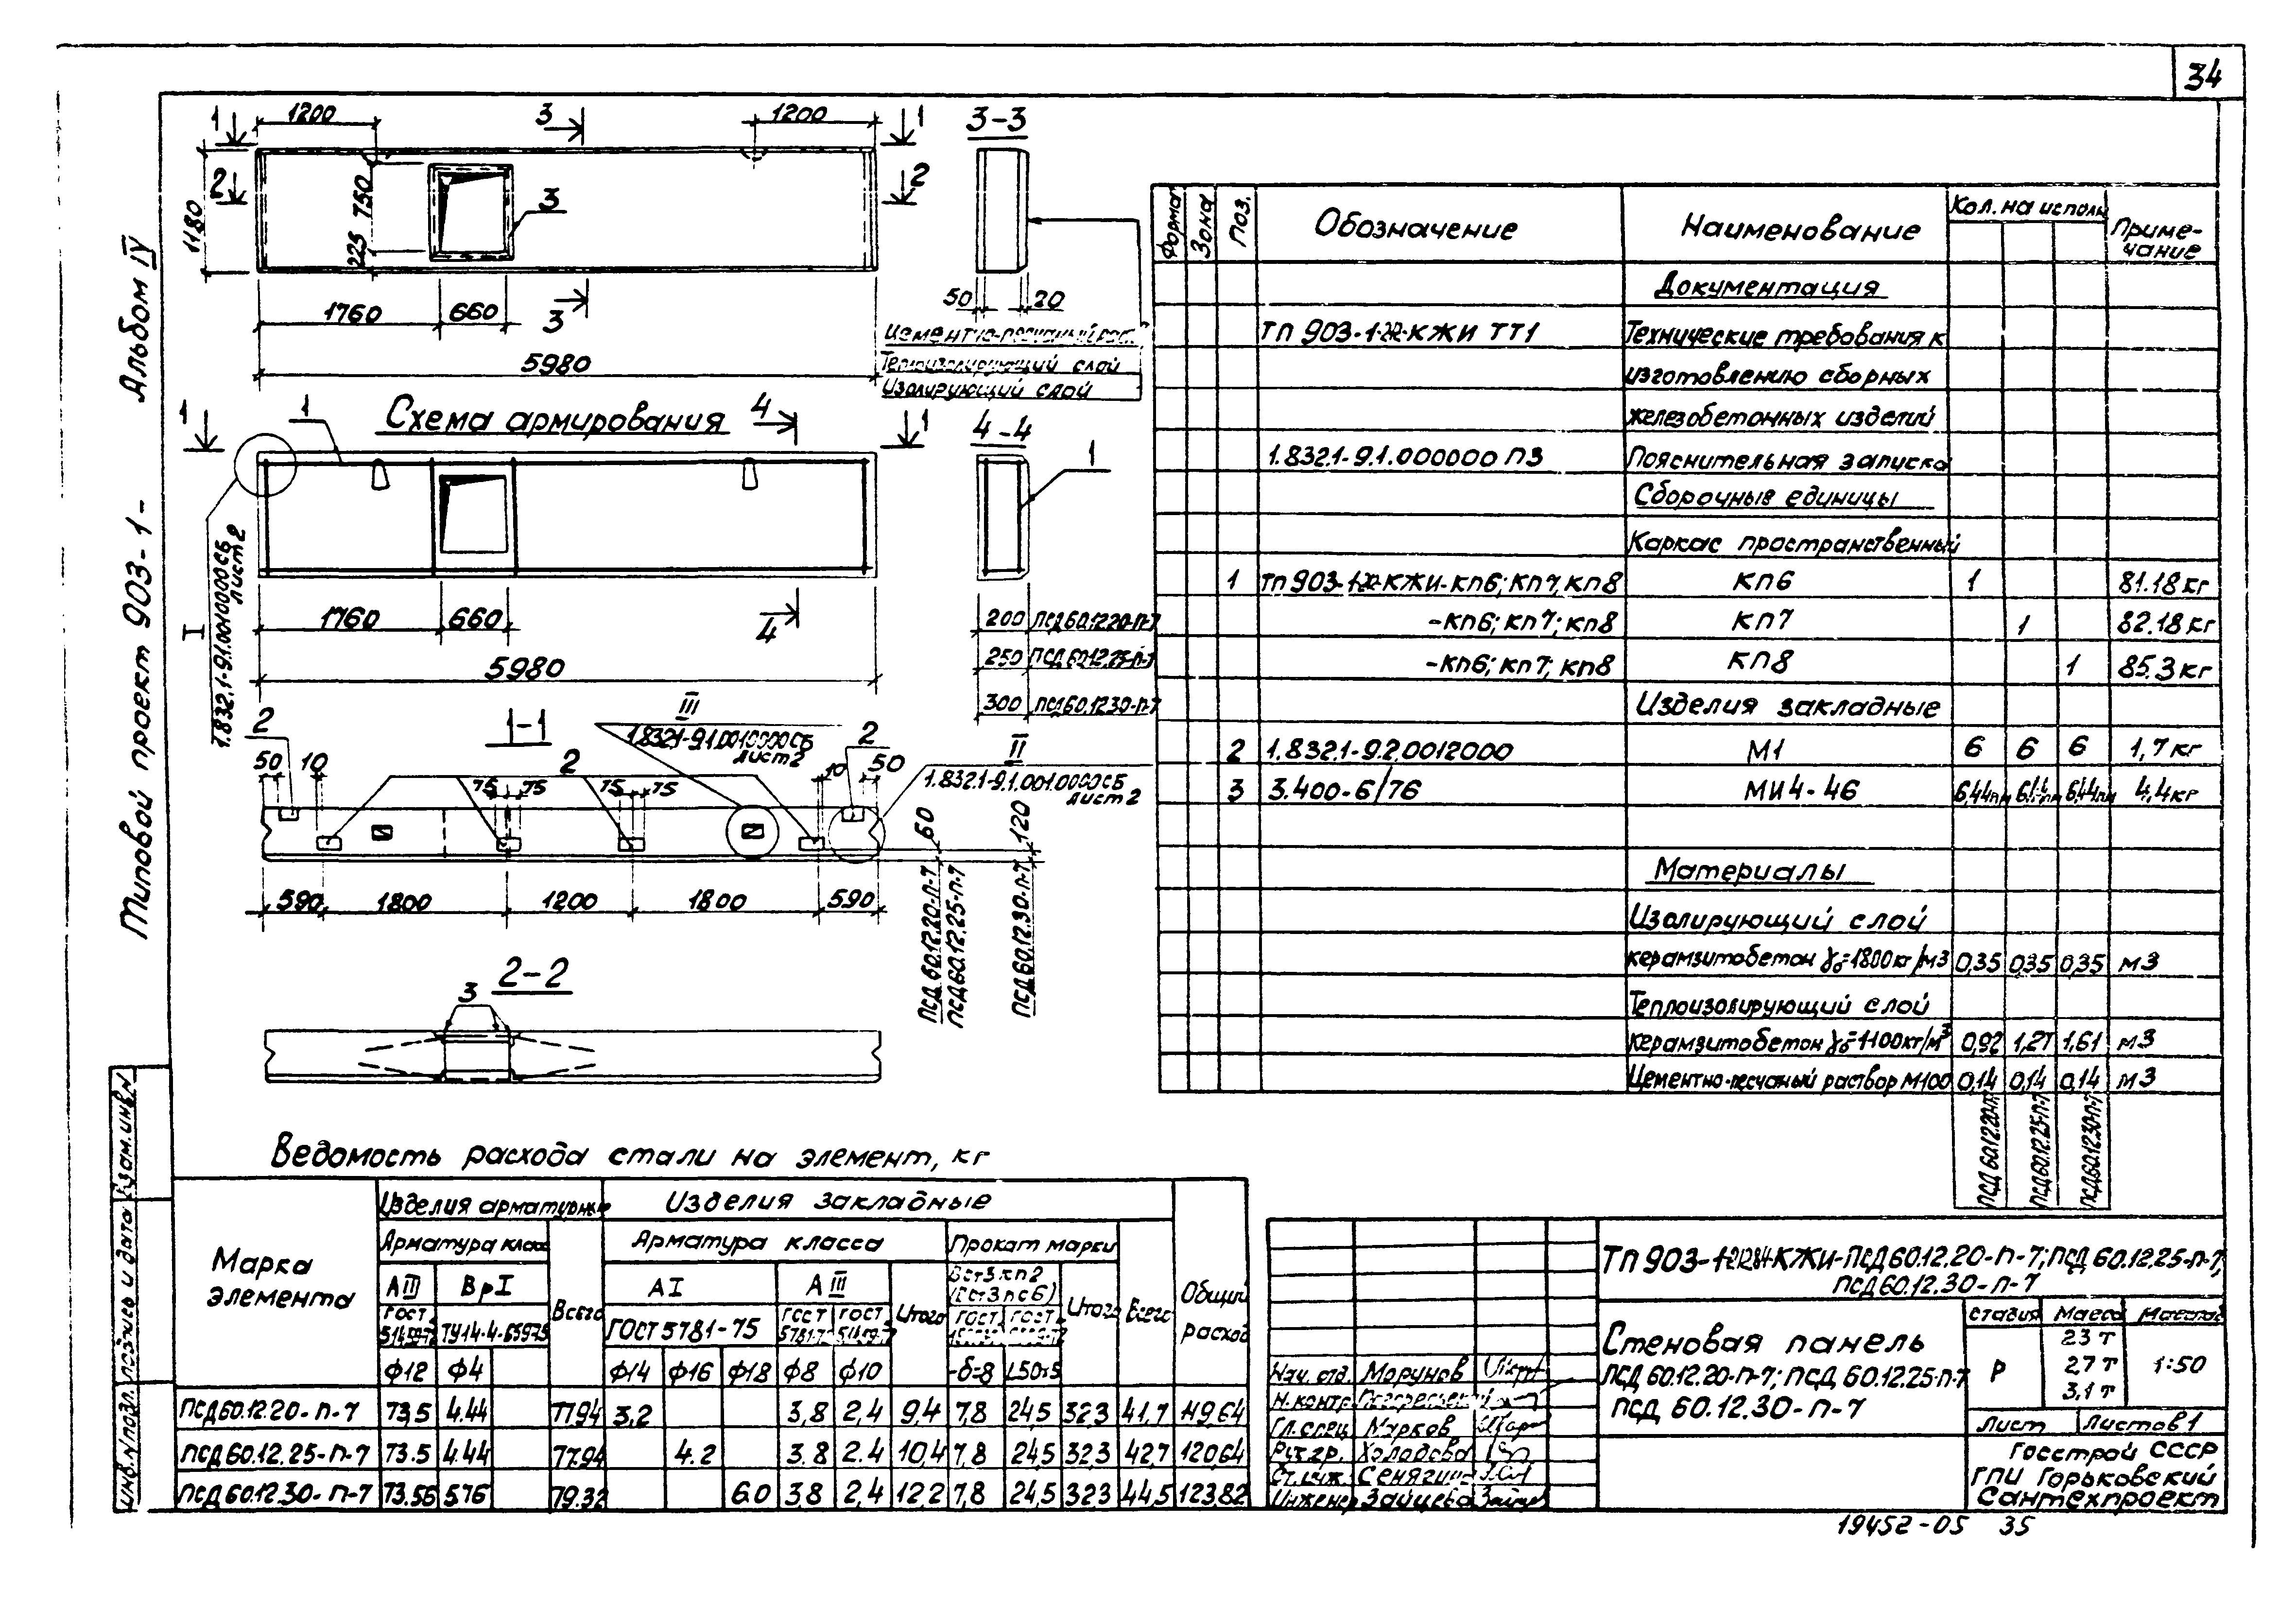 34
Типовой проект 903-1- Альбом IV
1200
1200
3
1
1
3-3
2
2
750
225
1180
3
1760
660
3
5980
50
20
Теплоизолирующий слой
Изолирующий слой
Схема армирования
1
1
4
1
4-4
1
I
1.832.1-9.1.0010000СБ
лист 2
1760
660
4
5980
200 ПСД60.12.20-П-7
250 ПСД60.12.25-П-7
300 ПСД60.12.30-П-7
1-1
III
1.832.1-9.1.0010000СБ
лист 2
II
1.832.1-9.1.001.0000СБ
лист 2
2
50
10
2
75 75
75 75
10
2
50
60
120
590
1800
1200
1800
590
ПСД 60.12.20-П-7
ПСД60.12.25-П-7
ПСД 60.12.30-П-7
2-2
3
Форма Зона Поз. Обозначение Наименование Кол. на исполн Примечание
Документация
Технические требования к
изготовлению сборных
железобетонных изделий
1.832.1-9.1.000000 ПЗ Пояснительная записка
Сборочные единицы
Каркас пространственный
1 КП6 1 81.18 кг
-КП6; КП7; КП8 КП7 1 82.18 кг
-КП6; КП7; КП8 КП8 1 85.3 кг
Изделия закладные
2 1.832.1-9.2.0012000 М1 6 6 6 1,7 кг
3 3.400-6/76 МИ4-46 6,44пм 6,44пм 6,44пм 4,4кг
Материалы
Изолирующий слой
керамзитобетон γо=1800кг/м3 0,35 0,35 0,35 м3
Теплоизолирующий слой
керамзитобетон γо=1100кг/м3 0,92 1,27 1,61 м3
Цементно-песчаный раствор М100 0,14 0,14 0,14 м3
ПСД 60.12.20-П-7
ПСД60.12.25-П-7
ПСД60.12.30-П-7
Ведомость расхода стали на элемент, кг
Марка элемента
Изделия арматурные Изделия закладные Общий расход
Арматура класса Всего Арматура класса Прокат марки Всего
АIII ВрI АI АIII Итого Вст3кп2 (Вст3пс6) Итого
ГОСТ ГОСТ 5781-75 ГОСТ ГОСТ ГОСТ ГОСТ
ф12 ф4 ф14 ф16 ф18 ф8 ф10 -δ=8 L50х5
ПСД60.12.20-П-7 73.5 4.44 77.94 3.2 3,8 2,4 9,4 7,8 24,5 32,3 41,7 119,64
ПСД 60.12.25-П-7 73.5 4.44 77.94 4.2 3.8 2.4 10,4 7,8 24,5 32,3 42,7 120,64
ПСД 60.12.30-П-7 73.56 5.76 79.32 6.0 3,8 2,4 12,2 7,8 24,5 32,3 44,5 123,82
Взам. инв.N
Подпись и дата
Инв.N подл.
ПСД 60.12.30-П-7
Стеновая панель
ПСД 60.12.20-П-7; ПСД 60.12.25-П-7
ПСД 60.12.30-П-7
Стадия Масса Масштаб
Р
2,3 т
2,7 т
3,1 т
1:50
Лист Листов 1
Госстрой СССР
ГПИ Горьковский
Сантехпроект
Нач. отд. Моргунов
Н. контр.
Гл. спец. Марков
Рук. гр. Холодова
Ст. инж.
Инженер Зайцева
19452-05 35